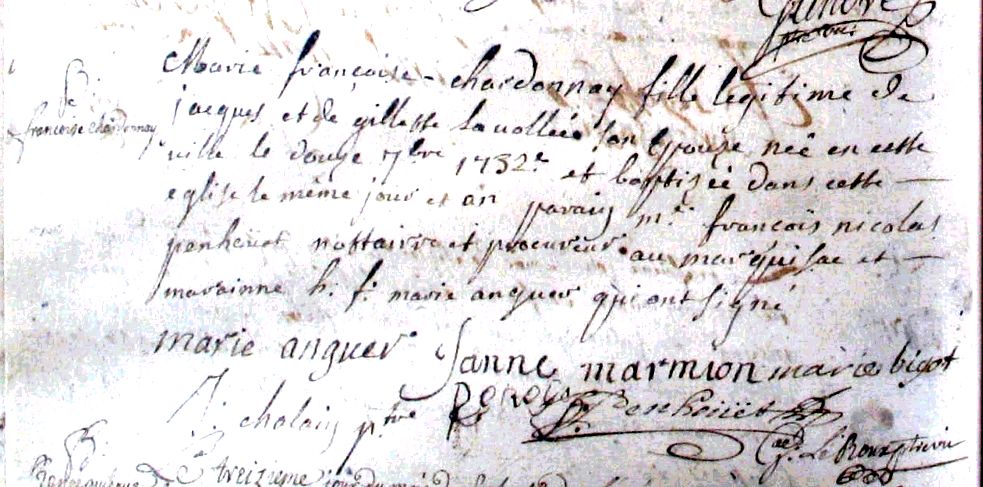 B.
francoise chardonnay
Marie françoise chardonnay fille legitime de
jacques et de gillette Lavollée son Epouze neé en cette
ville le douze 7bre 1732e et baptiseé dans cette
eglise le même jour et an parain mre françois nicolas
penhouet nottairre et procureur au marquisac et
marainne h. f. marie anguer qui ont signé
marie anguer Janne marmion marie bigot
J. cholain ptre Penhoüet
J. Le Roux
B.
treizieme jour du mois de